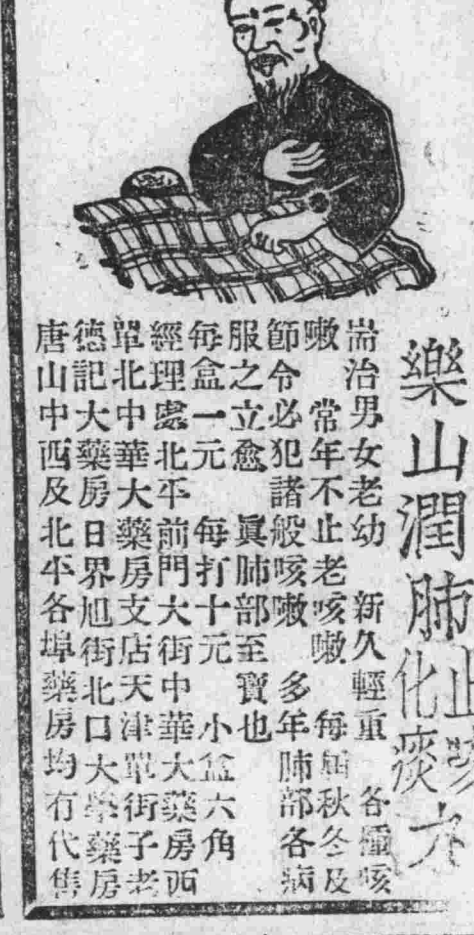 樂山潤肺化痰
止
耑治男女老幼 新久輕重 各種咳
嗽 常年不止老咳嗽 每屆秋冬及
節令必犯諸般咳嗽 多年肺部各病
服之立愈 眞肺部至寶也
每盒一元 每打十元 小盒六角
經理處北平前門大街中華大藥房西
單北中華大藥房支店天津單街子老
德記大藥房日界旭街北口大學藥房
唐山中西及北平各埠藥房均有代售